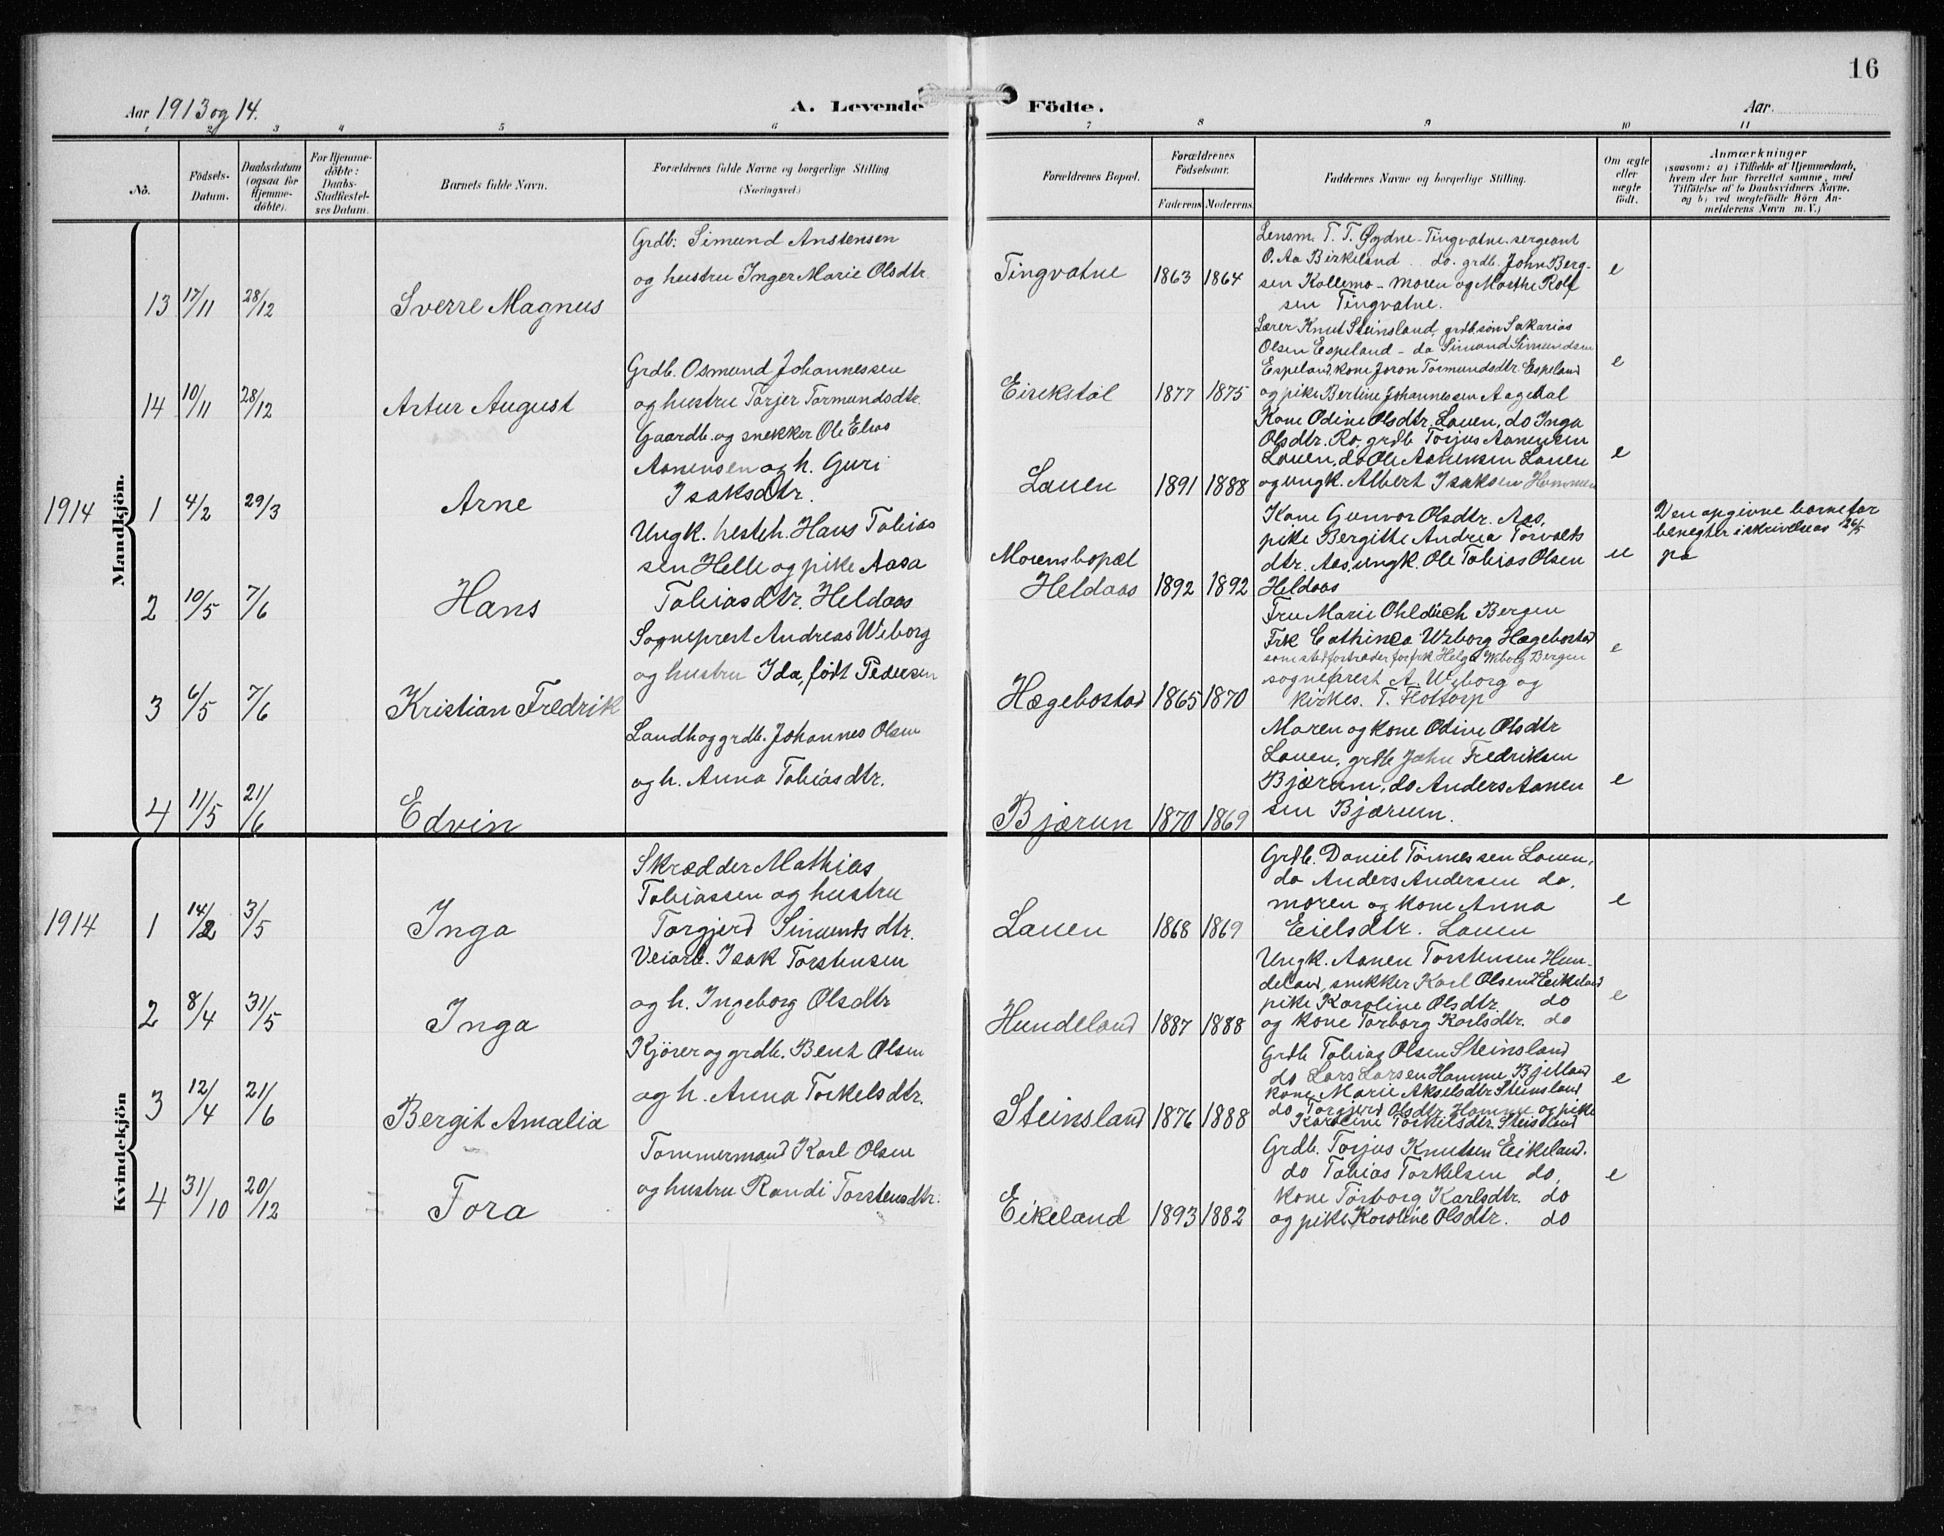 16
Aar 1913 og 14.
A. Levende Födte.
Aar
1 2 3 4 5 6 7 8 9 10 11
No.
Födsels-
Datum.
Daabsdatum
(ogsaa for
Hjemme-
döbte).
For Hjemme-
döbte:
Daabs-
Stadfæstel-
ses Datum.
Barnets fulde Navn.
Forældrenes fulde Navne og borgerlige Stilling
(Næringsvei.)
Forældrenes Bopæl.
Forældrenes
Födselsaar.
Faderens Moderens
Faddernes Navne og borgerlige Stilling.
Om ægte
eller
uægte
födt.
Anmærkninger
(saasom: a) i Tilfælde af Hjemmedaab,
hvem der har forrettet samme, med
Tilföielse af to Daabsvidners Navne,
og b) ved uægtefödte Börn An-
melderens Navn m. V.)
Mandkjön.
13 17/11 28/12 Sverre Magnus
Grdb: Simund Anstensen
og hustru Inger Marie Olsdtr.
Tingvatne 1863 1864
Lensm. T. T. Øydne - Tingvatne. sergeant
O. Aa Birkeland do. grdb. John Berg-
sen Kollemo - moren og Marthe Rolf
sen Tingvatne.
e
14 10/11 28/12 Artur August
Grdb. Osmund Johannessen
og hustru Torjer Tormundsdtr.
Eirikstøl 1877 1875
Lærer Knut Steinsland, grdb.søn Sakarias
Olsen Espeland - do Simund Simundsen
Espeland, kone Joron Tormundsdtr. Espeland
og pike Bertine Johannessen Aagedal
e
1914 1 4/2 29/3 Arne
Gaardb. og snekker Ole Elias
Aanensen og h. Guri
Isaksdtr.
Lauen 1891 1888
Kone Odine Olsdtr. Lauen, do Inga
Olsdtr. Ro, grdb Torjus Aanensen
Lauen, do Ole Aanensen Lauen
og ungk. Albert Isaksen Hommen
e
2 10/5 7/6 Hans
Ungk. hesteh. Hans Tobias
sen Helle og pike Aasa
Tobiasdtr. Heldaas
Morens bopæl
Heldaas 1892 1892
Kone Gunvor Olsdtr. Aas,
pike Bergitte Andrea Torvalds
dtr. Aas, ungk. Ole Tobias Olsen
Heldaas
u
Den opgivne barnefar
benegter i skrivelse as 26/5
pa
3 6/5 7/6 Kristian Fredrik
Sogneprest Andreas Wiborg
og hustru Ida, født Pedersen
Hægebostad 1865 1870
Fru Marie Ohldieck Bergen
Frk Cathinca Wiborg Hægebostad
som stedfortræder for frk Helga Wiborg Bergen
sogneprest A. Wiborg og
kirkes. T. Flottorp
e
4 11/5 21/6 Edvin
Landh og grdb. Johannes Olsen
og h. Anna Tobiasdtr.
Bjærum 1870 1869
Moren og kone Odine Olsdtr
Lauen, grdb John Fredriksen
Bjærum, do Anders Aanen
sen Bjærum.
e
Kvindekjön
1914 1 14/2 3/5 Inga
Skrædder Mathias
Tobiassen og hustru
Torgjerd Simundsdtr.
Lauen 1868 1869
Grdb. Daniel Tønnessen Lauen,
do Anders Andersen do,
moren og kone Anna
Eielsdtr. Lauen
e
2 8/4 31/5 Inga
Veiarb. Isak Torstensen
og h. Ingeborg Olsdtr
Hundeland 1887 1888
Ungk. Aanen Torstensen Hun-
deland, snekker Karl Olsen Eikeland
pike Karoline Olsdtr do
og kone Torborg Karlsdtr. do
e
3 12/4 21/6 Bergit Amalia
Kjører og grdb. Bent Olsen
og h. Anna Torkelsdtr.
Steinsland 1876 1888
Grdb Tobias Olsen Steinsland
do Lars Larsen Homme Bjelland
kone Marie Akselsdtr Steinsland
do Torgjerd Olsdtr. Homme og pike
Karoline Torkelsdtr. Steinsland
e
4 31/10 20/12 Tora
Tømmermand Karl Olsen
og hustru Randi Torstensdtr.
Eikeland 1893 1882
Grdb. Torjus Knutsen Eikeland.
do Tobias Torkelsen do,
kone Torborg Karlsdtr. do
og pike Karoline Olsdtr. do
e